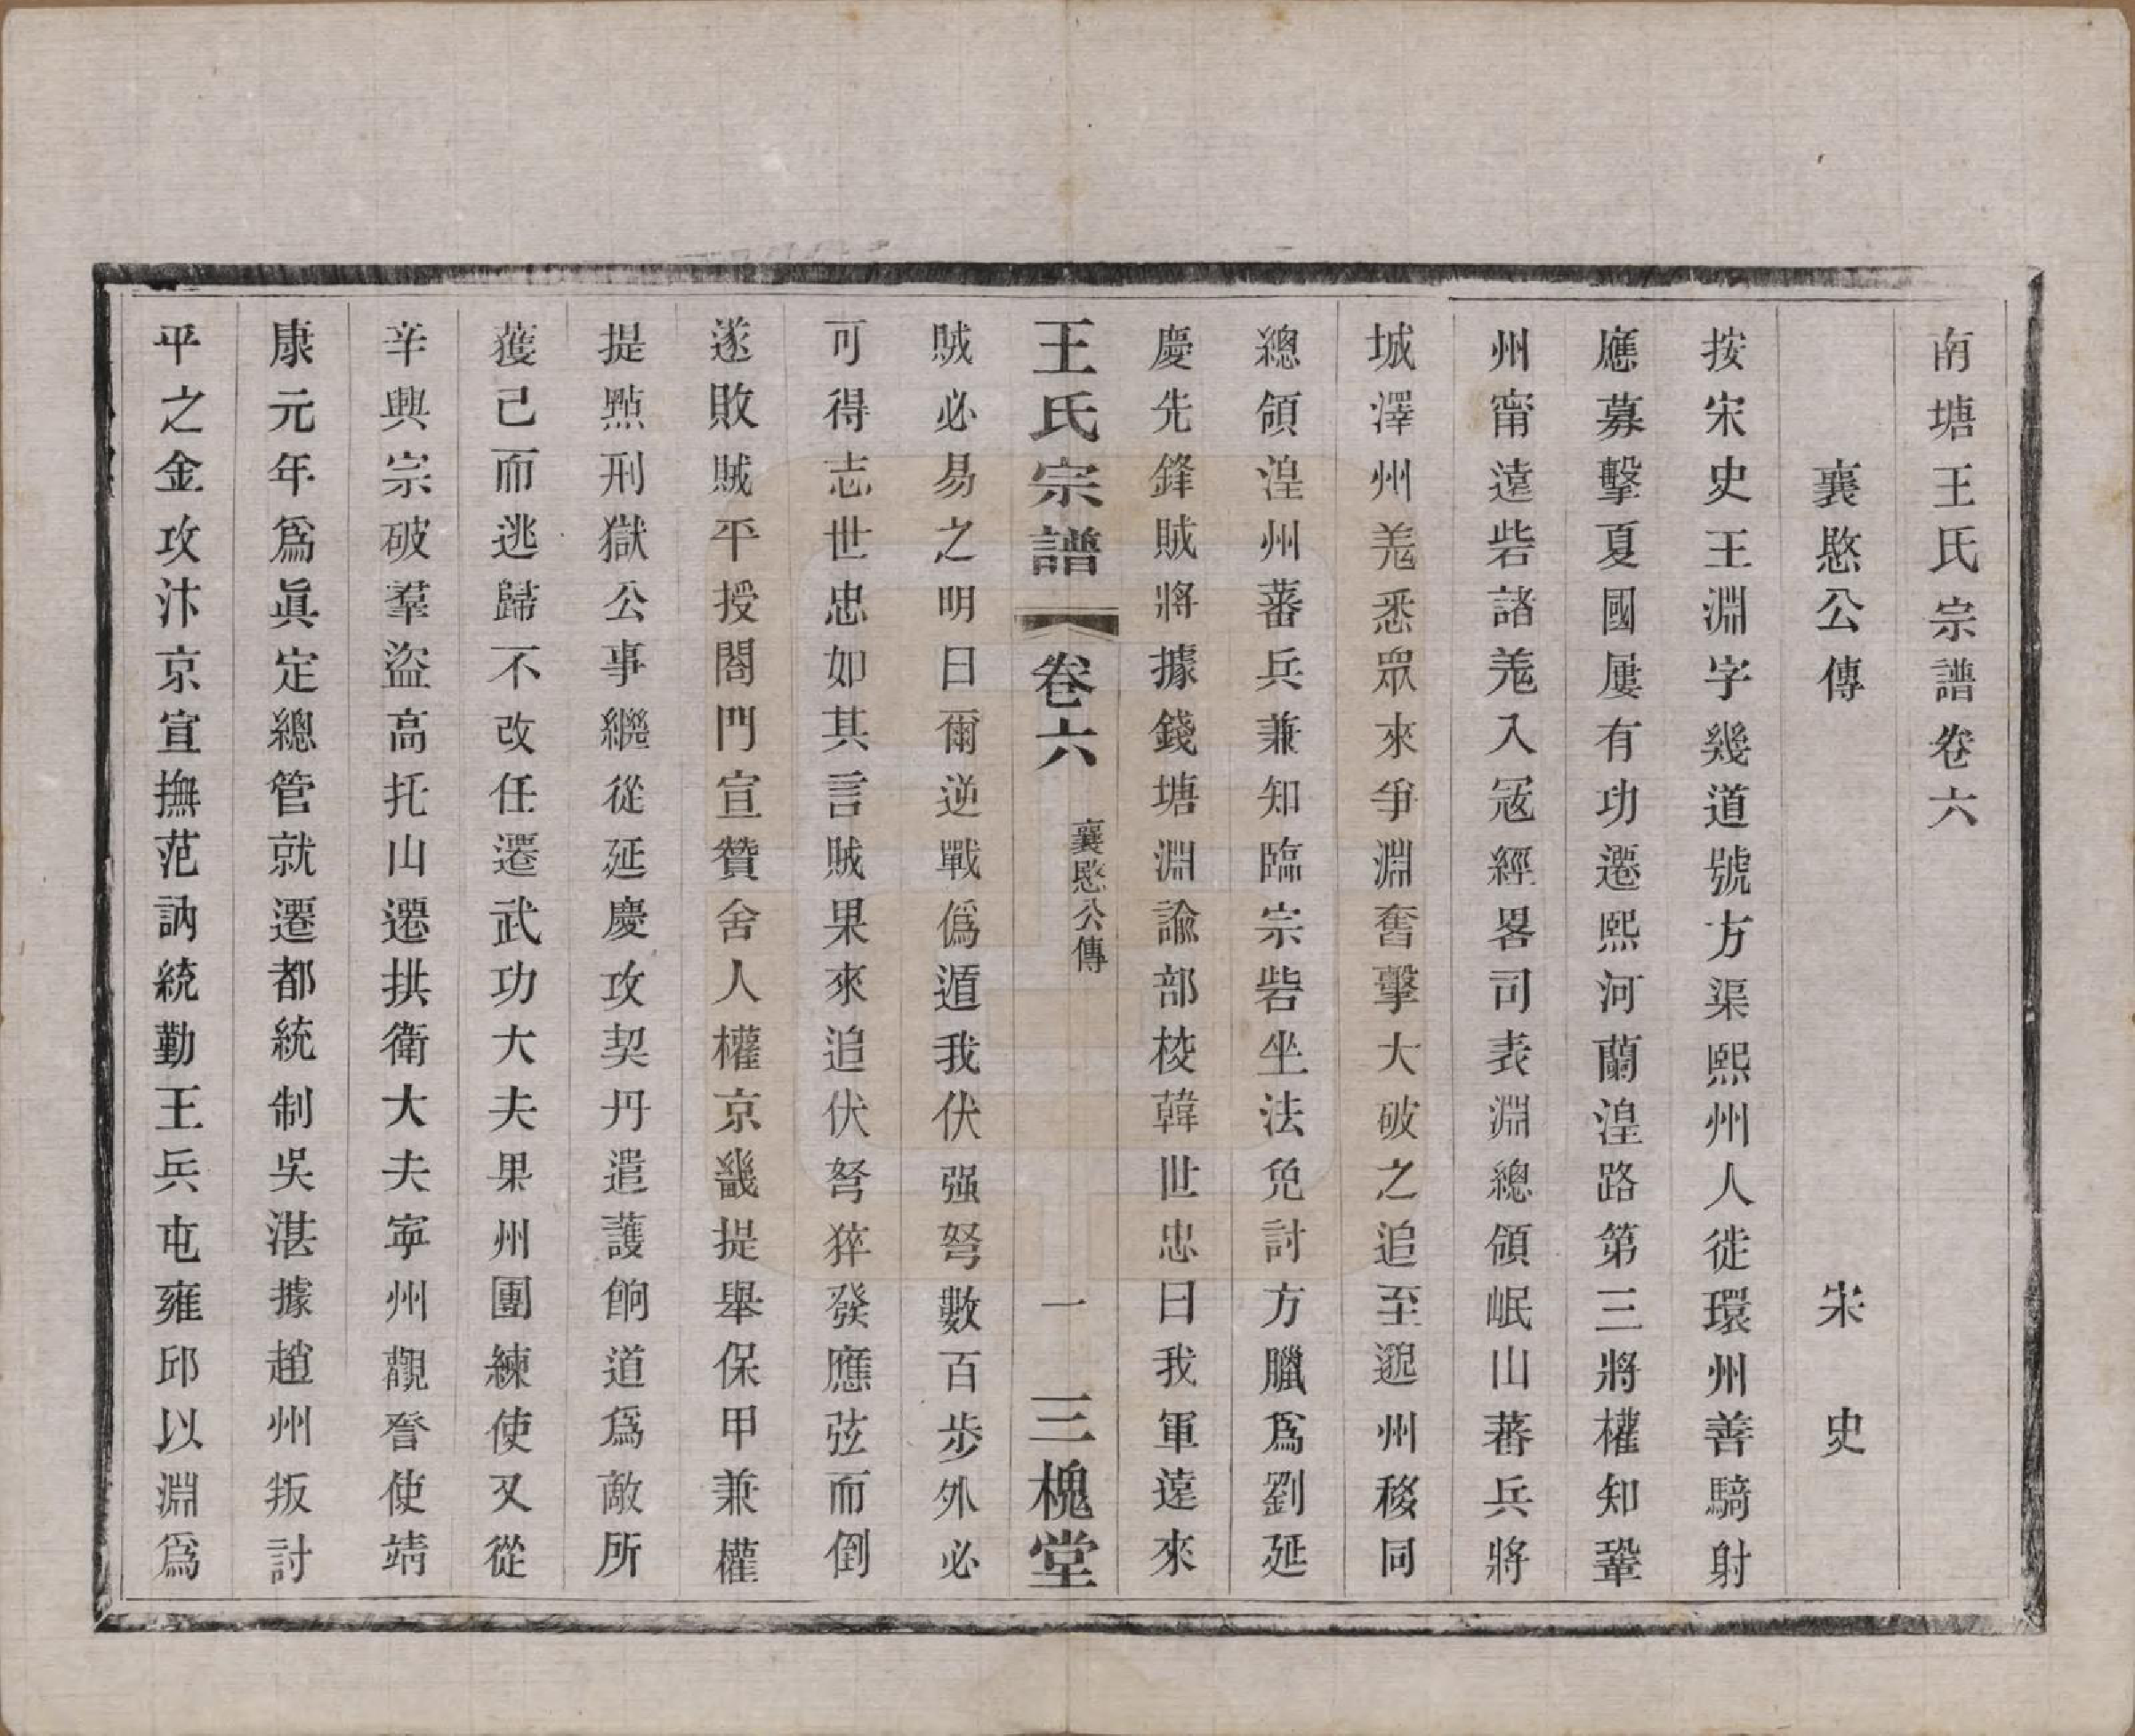 南塘王氏宗譜卷六
襄愍公傳　宋史
按宋史王淵字幾道號方渠熙州人徙環州善騎射
應募擊夏國屢有功遷熙河蘭湟路第三將權知鞏
州甯遠砦諸羗入寇經畧司表淵總領岷山蕃兵將
城澤州羗悉眾來爭淵奮擊大破之追至邈州移同
總領湟州蕃兵兼知臨宗砦坐法免討方臘爲劉延
慶先鋒賊將據錢塘淵諭部校韓世忠曰我軍遠來
王氏宗譜　卷六　襄愍公傳　一　三槐堂
賊必易之明日爾逆戰僞遁我伏强弩數百步外必
可得志世忠如其言賊果來追伏弩猝發應弦而倒
遂敗賊平授閤門宣贊舍人權京畿提舉保甲兼權
提點刑獄公事繼從延慶攻契丹遣護餉道爲敵所
獲已而逃歸不改任遷武功大夫果州團練使又從
辛興宗破羣盜高托山遷拱衛大夫寧州觀詧使靖
康元年爲眞定總管就遷都統制吳湛據趙州叛討
平之金攻汴京宣撫范訥統勤王兵屯雍邱以淵爲